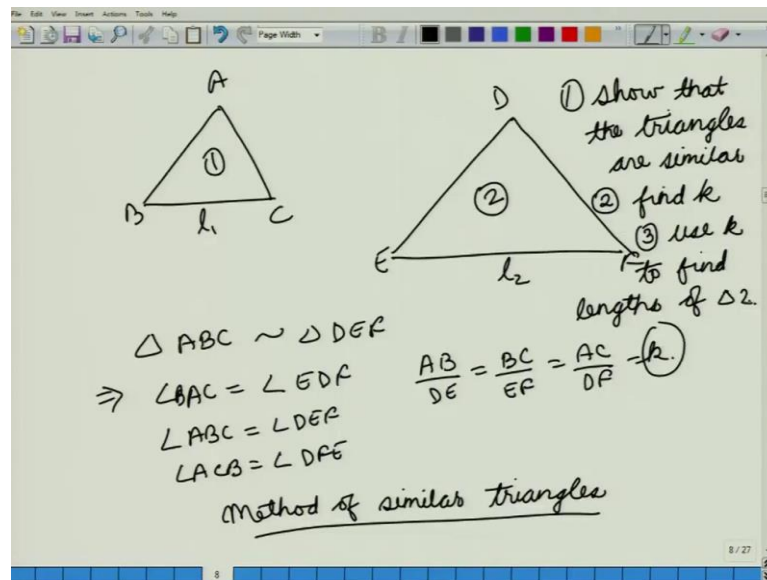 File Edit View Insert Actions Tools Help
Page Width
B I
A
①
B
C
l₁
D
②
E
F
l₂
① show that
the triangles
are similar
② find k
③ use k
to find
lengths of △ 2.
△ ABC ~ △ DEF
⇒ ∠BAC = ∠ EDF
∠ABC = ∠DEF
∠ACB = ∠ DFE
AB/DE = BC/EF = AC/DF = k.
Method of similar triangles
8 / 27
8